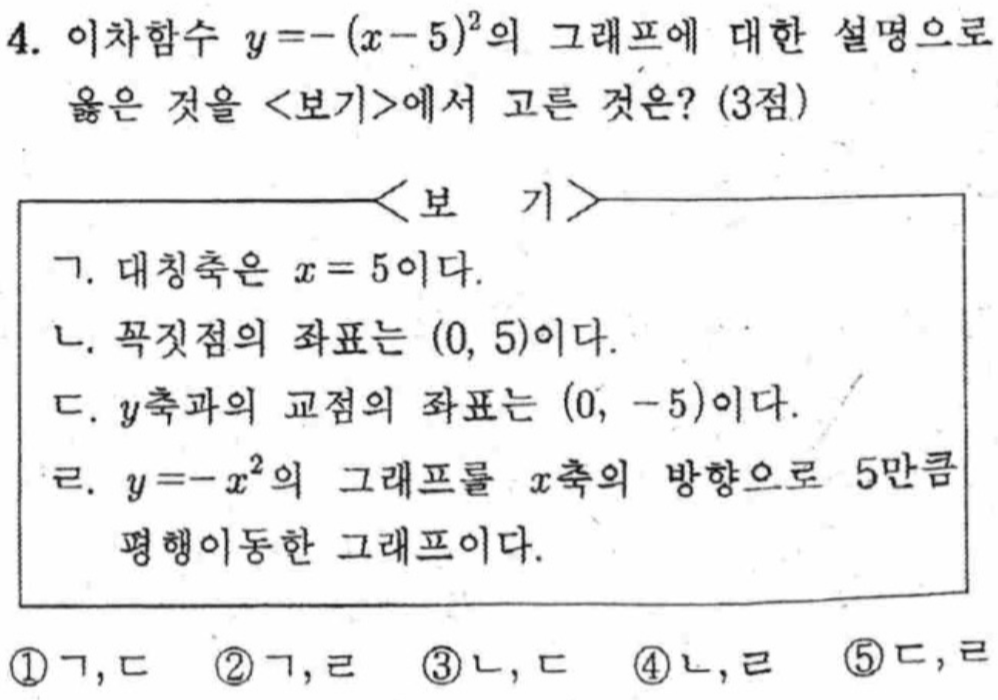 4. 이차함수 y=-(x-5)²의 그래프에 대한 설명으로
옳은 것을 <보기>에서 고른 것은? (3점)
<보 기>
ㄱ. 대칭축은 x=5이다.
ㄴ. 꼭짓점의 좌표는 (0, 5)이다.
ㄷ. y축과의 교점의 좌표는 (0, -5)이다.
ㄹ. y=-x²의 그래프를 x축의 방향으로 5만큼
평행이동한 그래프이다.
①ㄱ, ㄷ ②ㄱ, ㄹ ③ㄴ, ㄷ ④ㄴ, ㄹ ⑤ㄷ, ㄹ